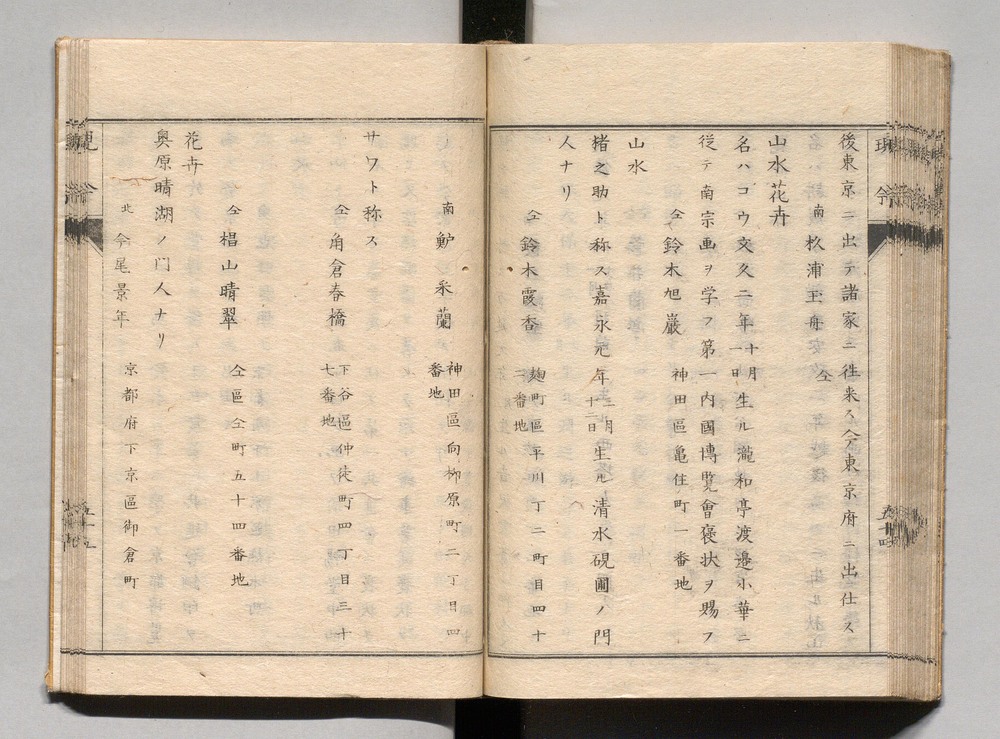 後東京ニ出テ諸家ニ往来ス今東京府ニ出仕ス
南 杉浦玉舟 仝
山水花卉
名ハゴウ文久二年十一月日生ル瀧和亭渡邉小華ニ
従テ南宗画ヲ学フ第一内國博覧會褒状ヲ賜フ
仝 鈴木旭巌 神田區亀住町一番地
山水
楮之助ト称ス嘉永元年二月十二日生ル清水硯圃ノ門
人ナリ
仝 鈴木霞香 麹町區平川丁二町目四十二番地
南 鮒釆蘭 神田區向柳原町二丁目四番地
サワト称ス
仝 角倉春橋 下谷區仲徒町四丁目三十七番地
仝 椙山晴翠 仝區仝町五十四番地
花卉
奥原晴湖ノ門人ナリ
北 今尾景年 京都府下京區御倉町